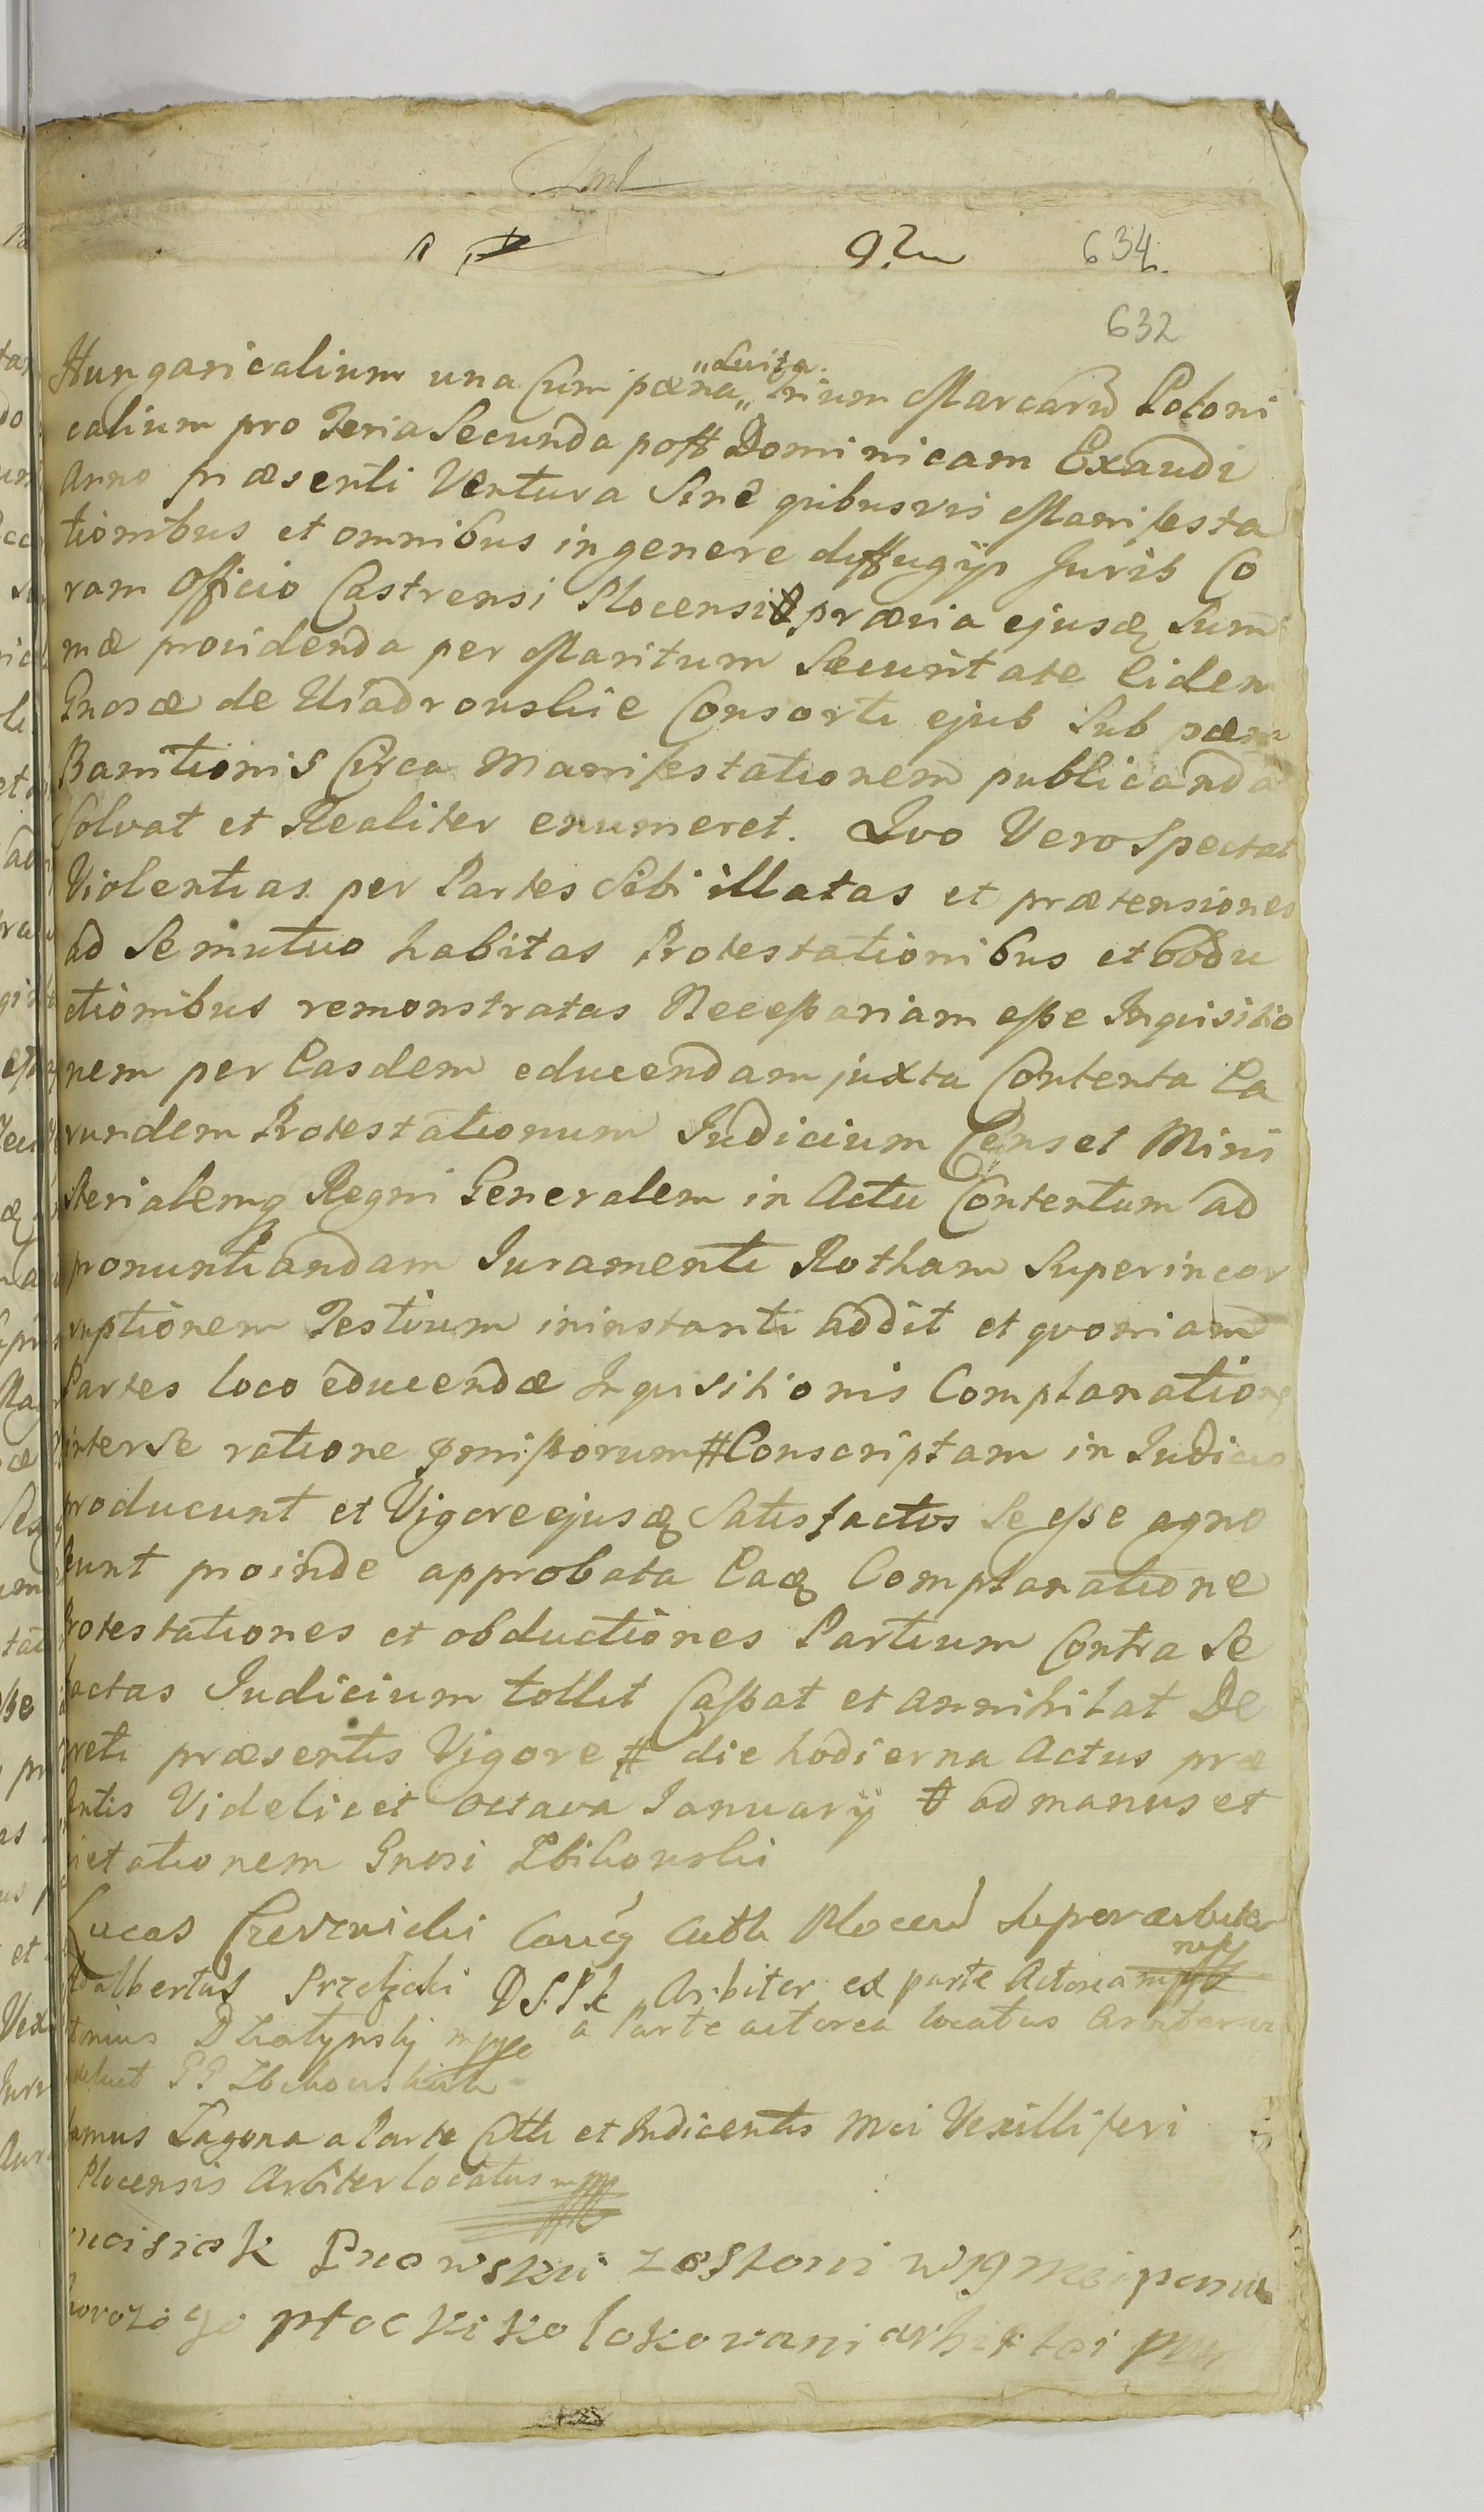 634.
632
Hungaricalium una Cum pæna „Luita„ trium Marcarū Poloni
calium pro Feria Secunda post Dominicam Exaudi
Anno præsenti Ventura Sine quibusvis Manifesta
tionibus et omnibus in genere diffugÿs Juris Co
ram Officio Castrensi Plocensi prævia ejusdē Sum̄
mæ providenda per Maritum Securitate Eidem
Gnosæ de Uiadrouskie Consorti ejus Sub pæna
Banitionis Circa Manifestationem publicanda
Solvat et Realiter enumeret. Quo Vero Spectat
Violentias per Partes Sibi illatas et prætensiones
ad Se mutuo habitas Protestationibus et obdu
ctionibus remonstratas Necessariam esse Inquisitio
nem per Easdem educendam juxta Contenta Ea
rundem Protestationum Judicium Censet Mini
sterialemq Regni Generalem in Actu Contentum ad
pronuntiandam Juramenti Rotham Super incor
ruptionem Testium in instanti addit et quoniam
Partes loco educendæ Inquisitionis Complanatione
inter Se ratione pmissorum # Conscriptam in Judicio
producunt et Vigore ejusdē Satisfactos Se esse agno
scunt proinde approbata Eadē Complanatione
Protestationes et obductiones Partium Contra Se
factas Judicium tollit Cassat et annihilat De
creti præsentis Vigore # die hodierna Actus præ
sentis Videlicet octava Januarÿ ad manus et
Gnosi Zbikouski
Lucas Can̄g Cath Plocen̄ Superarbiter
Adalbertus D S. P. Arbiter ex parte Actorea mpp
a Parte actorea locatus Arbiter
Zagora a Parte Citti et Indicentis Mci Vexilliferi
Plocensis Arbiter locatus mpp
z strony
płockiko lokovani